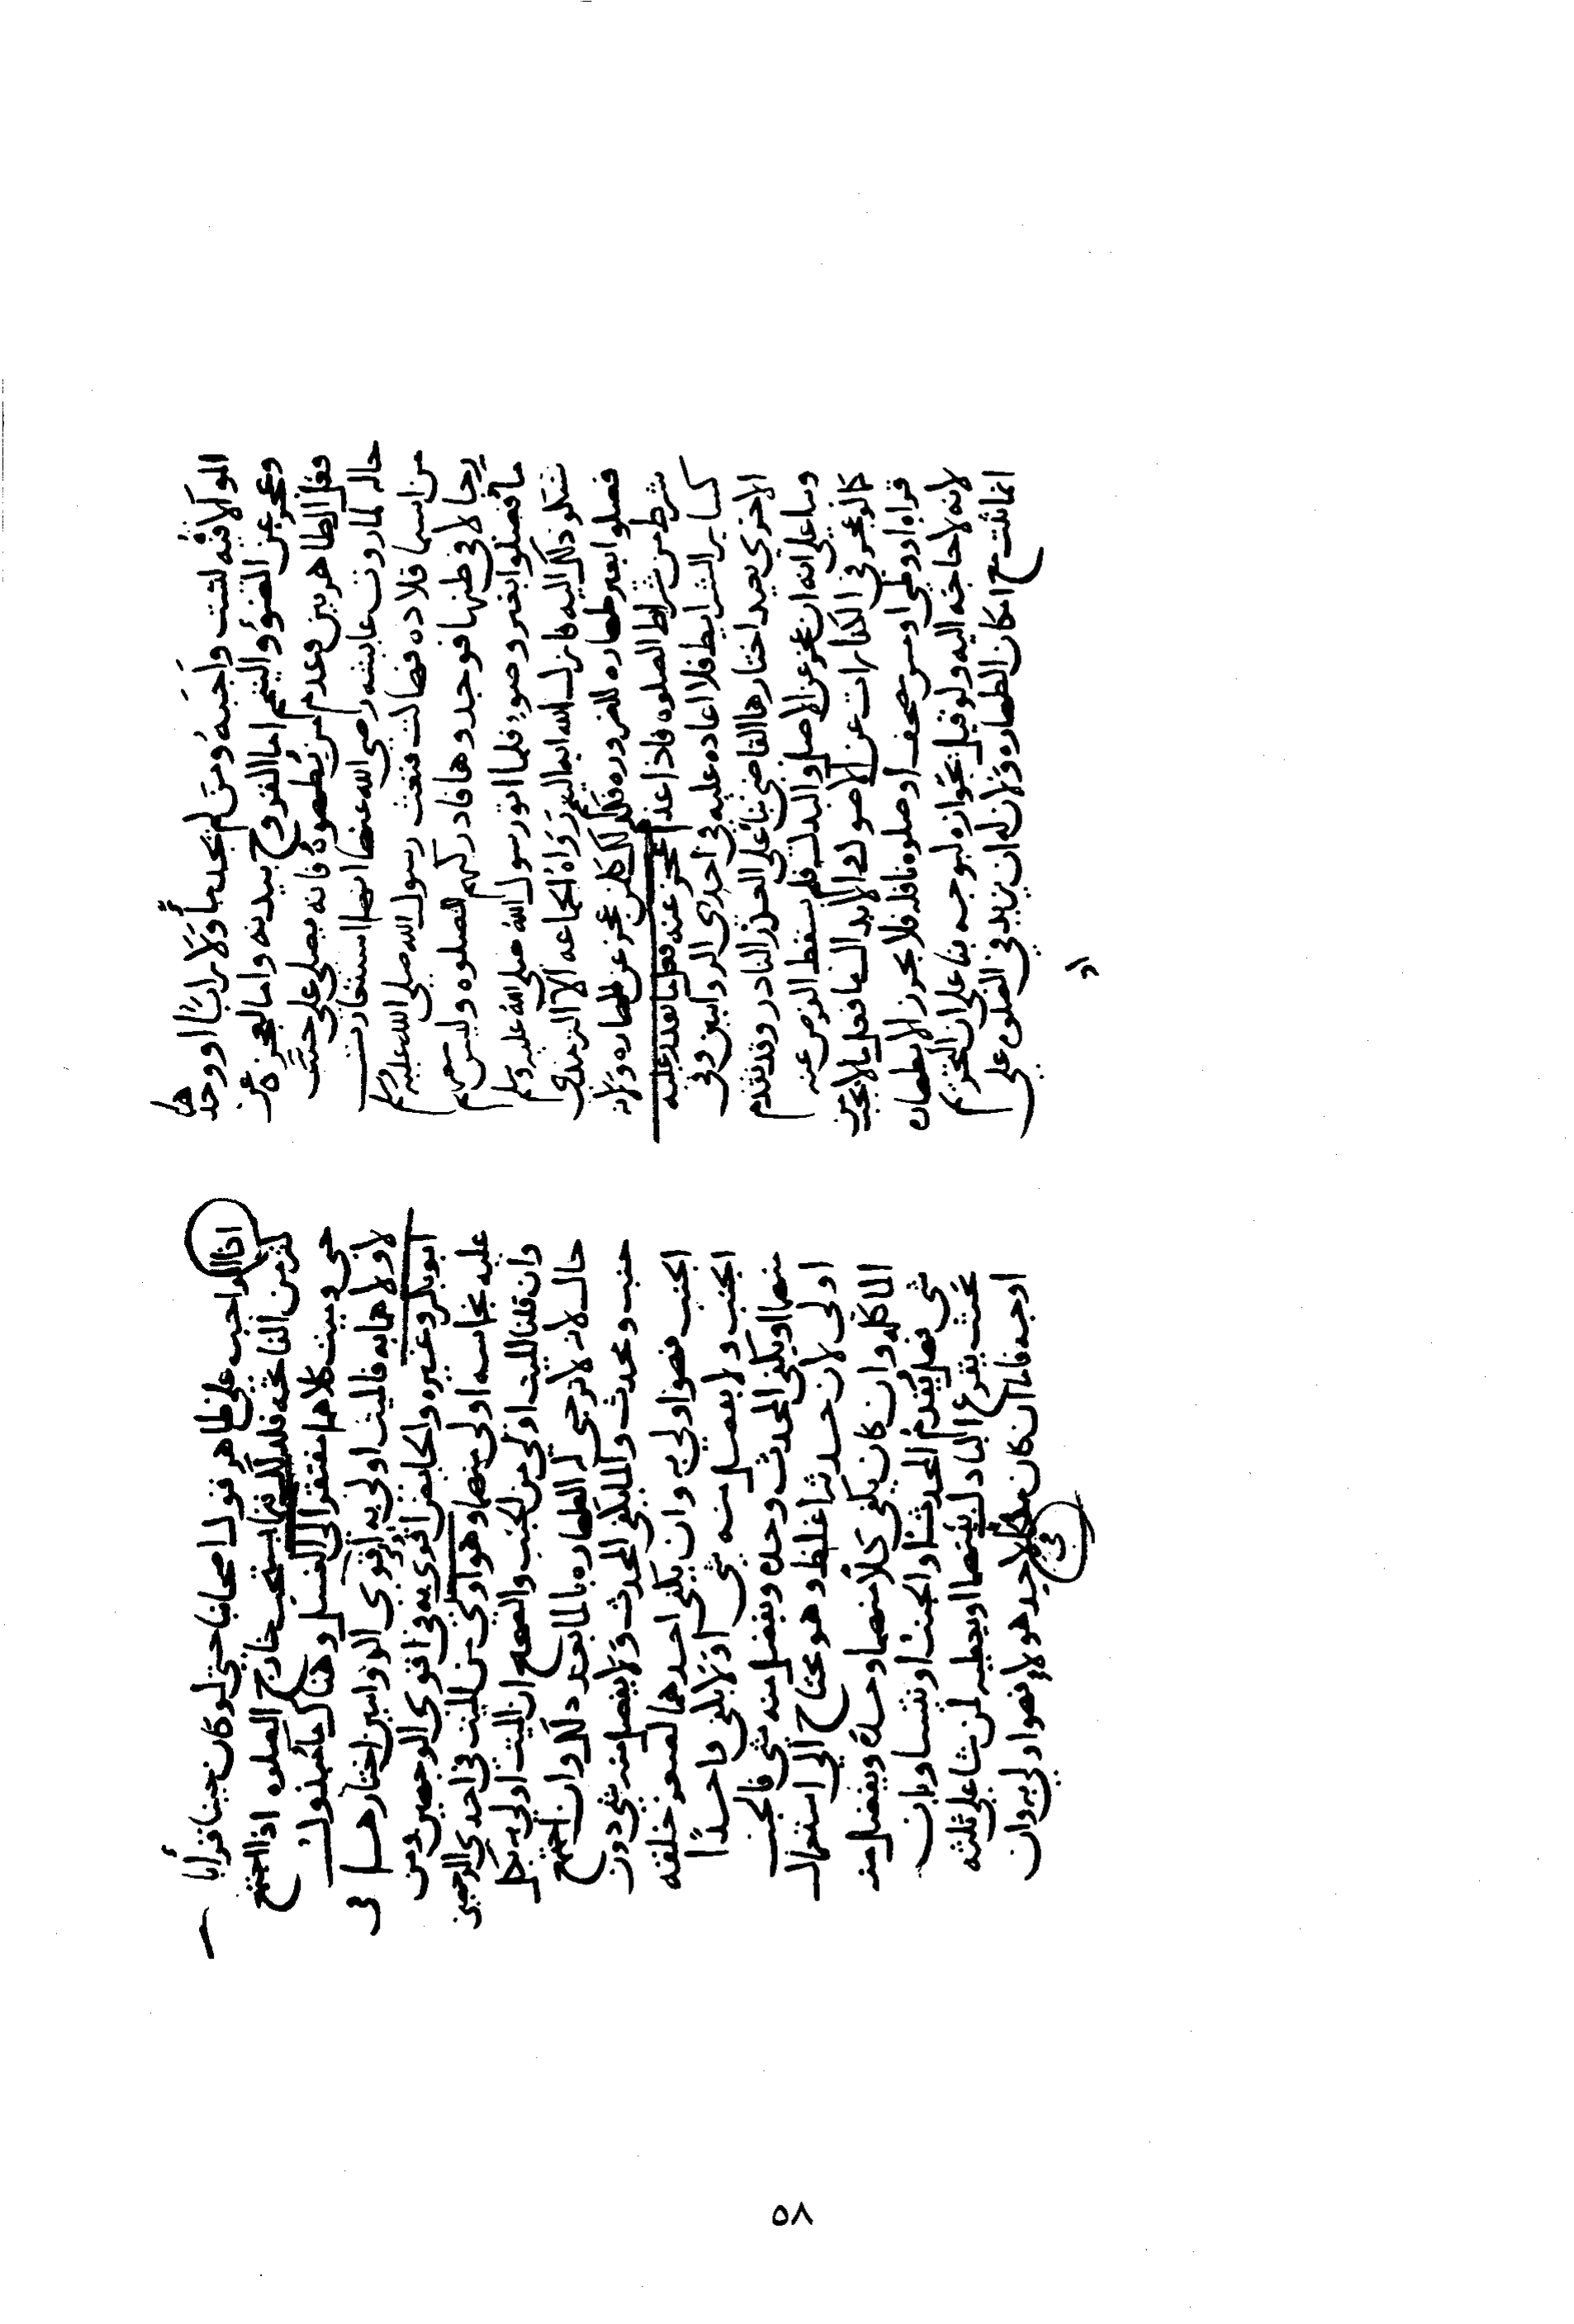 الموالاة فيه ليست واجبة ومن لم يجد ماءً ولا ترابًا او وجدهما
وعجز عن الوضوء والتيمم اما لقروح ببدنه واما لعجزه عن
فعل الطاهرين وعدم من يطهره فانه يصلي على حسب
حاله لما روت عايشه رضي الله عنها انها استعارت
من اسما قلاده فبعث رسول الله صلى الله عليه وسلم
رجالا في طلبها فوجدوها فادركتهم الصلوه وليس معهم
ما فصلوا بغير وضوء فلما اتو رسول الله صلى الله عليه وسلم
شكو ذلك اليه فانزل الله ايه التيمم رواه الجماعه الا الترمذي
فصلوا بغير طهاره للضروره فكذلك كل من عجز عن طهاره ولانه
شرط من شرايط الصلوه فاذا عجز عنه فعل ما يقدر عليه
كساير الشرايط فلا اعاده عليه في احدى الروايتين وفي
الاخرى يعيد اختارها القاضي بناء على العذر النادر وقد تقدم
وبنا على انه ان عجز عن الاصل والبدل فلم يسقط الفرض عنه
كما لو عجز في الكفارات عن الاصول والابدال فاما فعل ما لا يجوز
قراه او وطي او مس مصحف او صلوه نافله فلا يجوز الا بطهاره
لانه لا حاجه اليه ولو قيل بجوازه لتوجه بنا على ان التحريم
انما ثبت مع امكان الطهاره ولان له ان يزيد في الصلوه على
الواجب على ظاهر قول اصحابنا حتى لو كان جنبا قرأ
من الفاتحه فلذلك فيما يستحب خارج الصلوه اذا اجتمع
حي وميت كلاهما مفتقر الى الغسل وهناك ما مبذول
لاولاهما به فالميت اولى به في اقوى الروايتين اختارها
ابو بكر وغيره والحايض اقوى به في اقوى الوجهين ومن
عليه نجاسه اولى منهما وهو اولى من الميت في احدى الوجهين
وان قلنا الميت اولى من الجنب والصحيح ان الميت اولى به بكل
حال لانه لا ترجى له الطهاره بالما بعد ذلك وان اجتمع
جنب ومحدث والما يكفي المحدث ولا يفضل منه شي دون
الجنب فهو اولى به وان يكفي احدهما لصغر خلقه
الجنب ولا يفضل منه شي او لا يكفي واحدًا
منهما او يكفي المحدث وحده ويفضل منه شي فالجنب
اولى لان حدثه اغلظ وهو محتاج الى استعمال
الما كله وان كان يكفي كلا منهما وحده ويفضل منه
شي فهل يقدم المحدث او الجنب او يتساويان
بحيث يقرع الباذل بينهما او يعطيه لمن شا على ثلثه
اوجه فاما ان كان ملكا لاحد هولاء فهو اولى به وان
٥٨